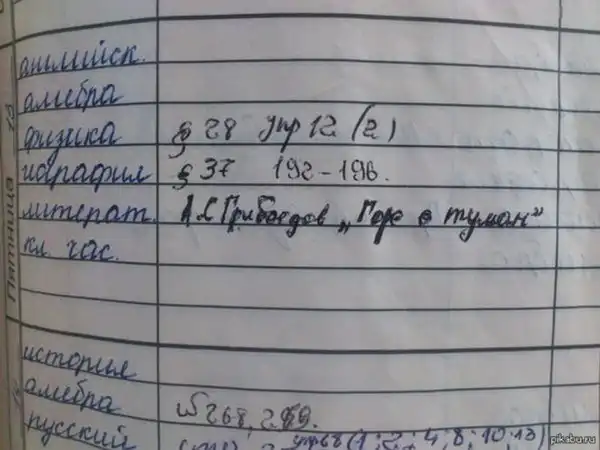 Пятница
английск.
алгебра
физика § 28 упр 12 (2)
география § 37 192-196.
литерат. А.С Грибоедов „Горе о туман”
кл. час.
история
алгебра №268, 269.
русский упр68(1;2;4;8;10;13)
pikabu.ru